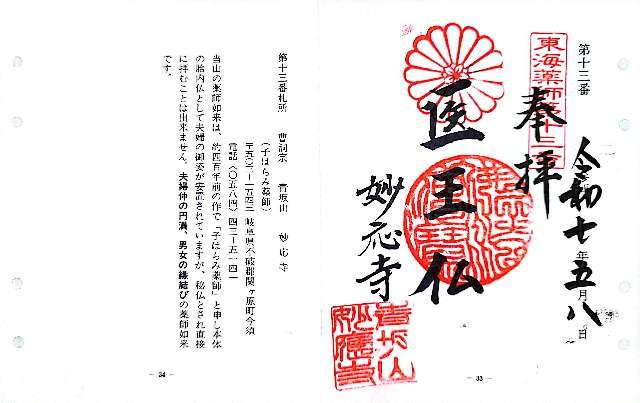 第十三番
奉拝
東海薬師第十三
医王仏
妙応寺
令和七年五月八日
― 33 ―
第十三番札所　曹洞宗　青坂山　妙応寺
（子はらみ薬師）
〒五〇三―一五四三 岐阜県不破郡関ヶ原町今須
電話（〇五八四）四三―五一四一
当山の薬師如来は、約四百年前の作で「子はらみ薬師」と申し本体
の胎内仏として夫婦の御姿が安置されていますが、秘仏とされ直接
に拝むことは出来ません。夫婦仲の円満、男女の縁結びの薬師如来
です。
― 34 ―